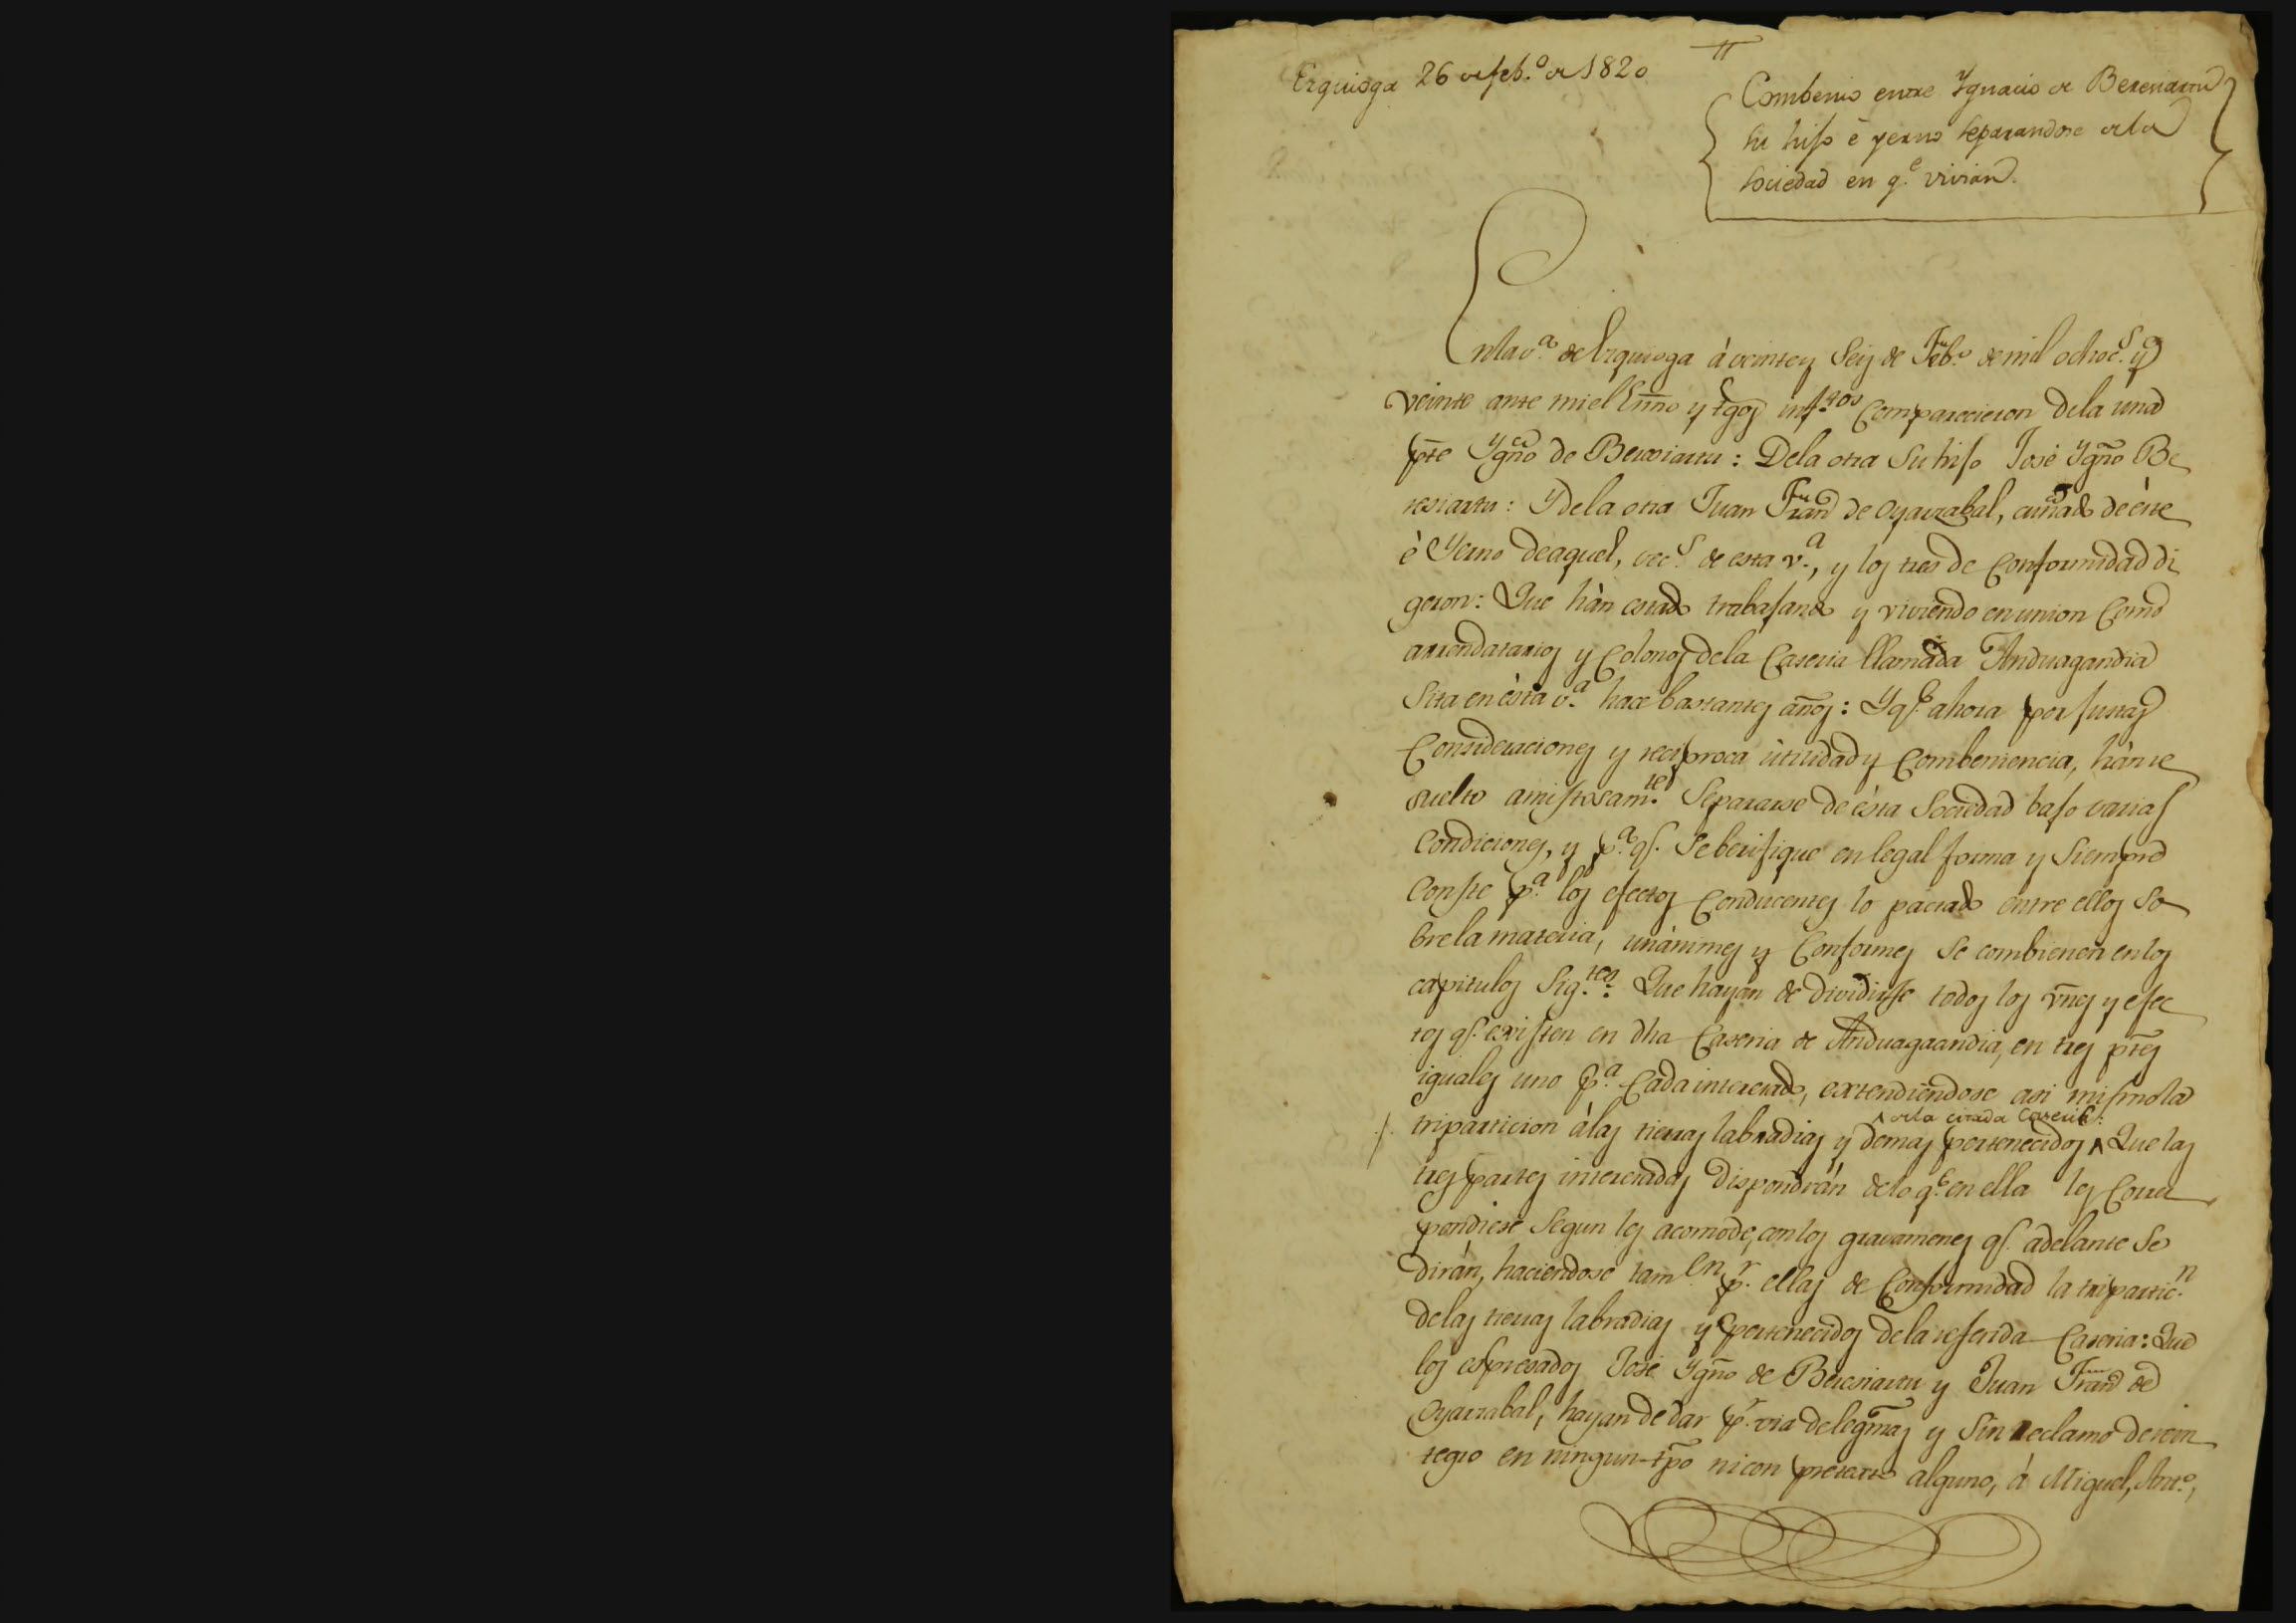 Ezquioga 26 de feb.º de 1820
Combenio entre Ygnacio de Beresiartu
su hijo é yerno separandose de la
sociedad en q.e vivian.
En la v.a de Ezquioga à veinte y seis de Feb.º de mil ochoc.s y
veinte ante mi el Esñno y tgos infros comparecieron de la una
pte Ygnº de Beresiartu: De la otra su hijo José Ygnº Be
resiartu: Y de la otra Juan Franº de Oyarzabal, cuñado de éste
è Yerno de aquel, vec.s de esta v.a, y los tres de conformidad di
geron: Que hàn estado trabajando y viviendo en union como
arrendatarios y colonos de la Caseria llamada Anduagandia
sita en ésta v.a hace bastantes años: Y q.e ahora por justas
consideraciones y reciproca utilidad y combeniencia, hàn re
suelto amistosam.te separarse de ésta Sociedad bajo varias
condiciones, y p.a q.e se berifique en legal forma y siempre
conste p.a los efectos conducentes lo pactado entre ellos so
bre la materia, unánimes y conformes se combienen en los
capitulos sig.tes: Que hayan de dividirse todos los vnes y efec
tos q.e existen en dha Caseria de Anduagaandia, en tres ptes
iguales uno p.a cada interesado, extendiéndose asi mismo la
de la citada Caseria:
triparticion à las tierras labradias y demas pertenecidos ^ Que las
tres partes interesadas dispondràn de lo q.e en ella les corres
pondiese segun les acomode, con los gravamenes q.e adelante se
dirán, haciendose tambn p.r ellas de conformidad la tripartic.n
de las tierras labradias y pertenecidos de la referida Caseria: Que
los espresados José Ygnº de Beresiartu y Juan Franº de
Oyarzabal, hayan de dar p.r via de legmas y sin reclamo de rein
tegro en ningun tpo ni con pretexto alguno, á Miguel, Antº,